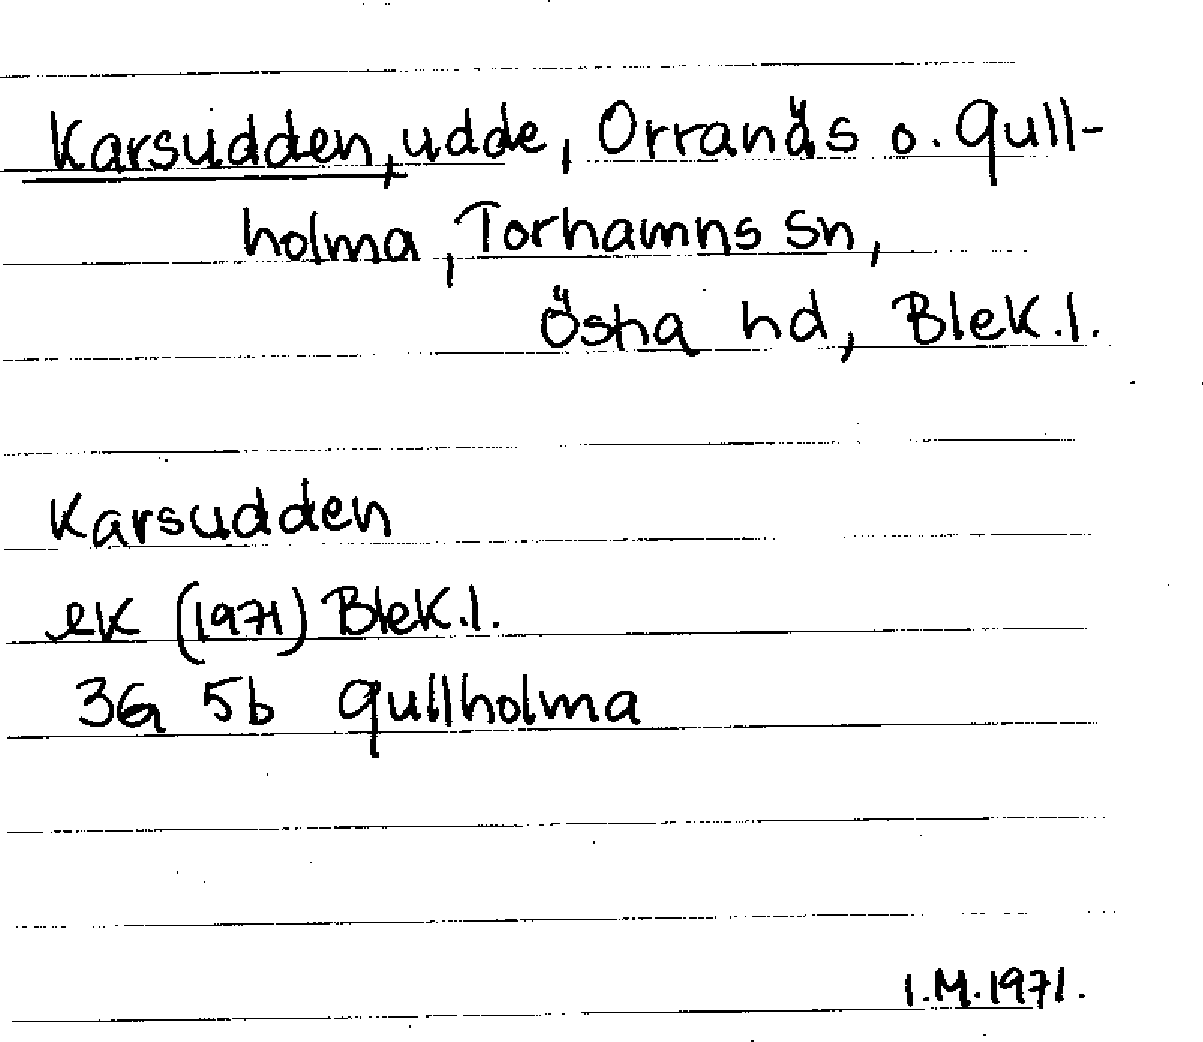 Karsudden, udde, Orranäs o. Gull-
holma, Torhamns sn,
Östra hd, Blek.l.
Karsudden
ek (1971) Blek.l.
3G 5b Gullholma
I.M.1971.